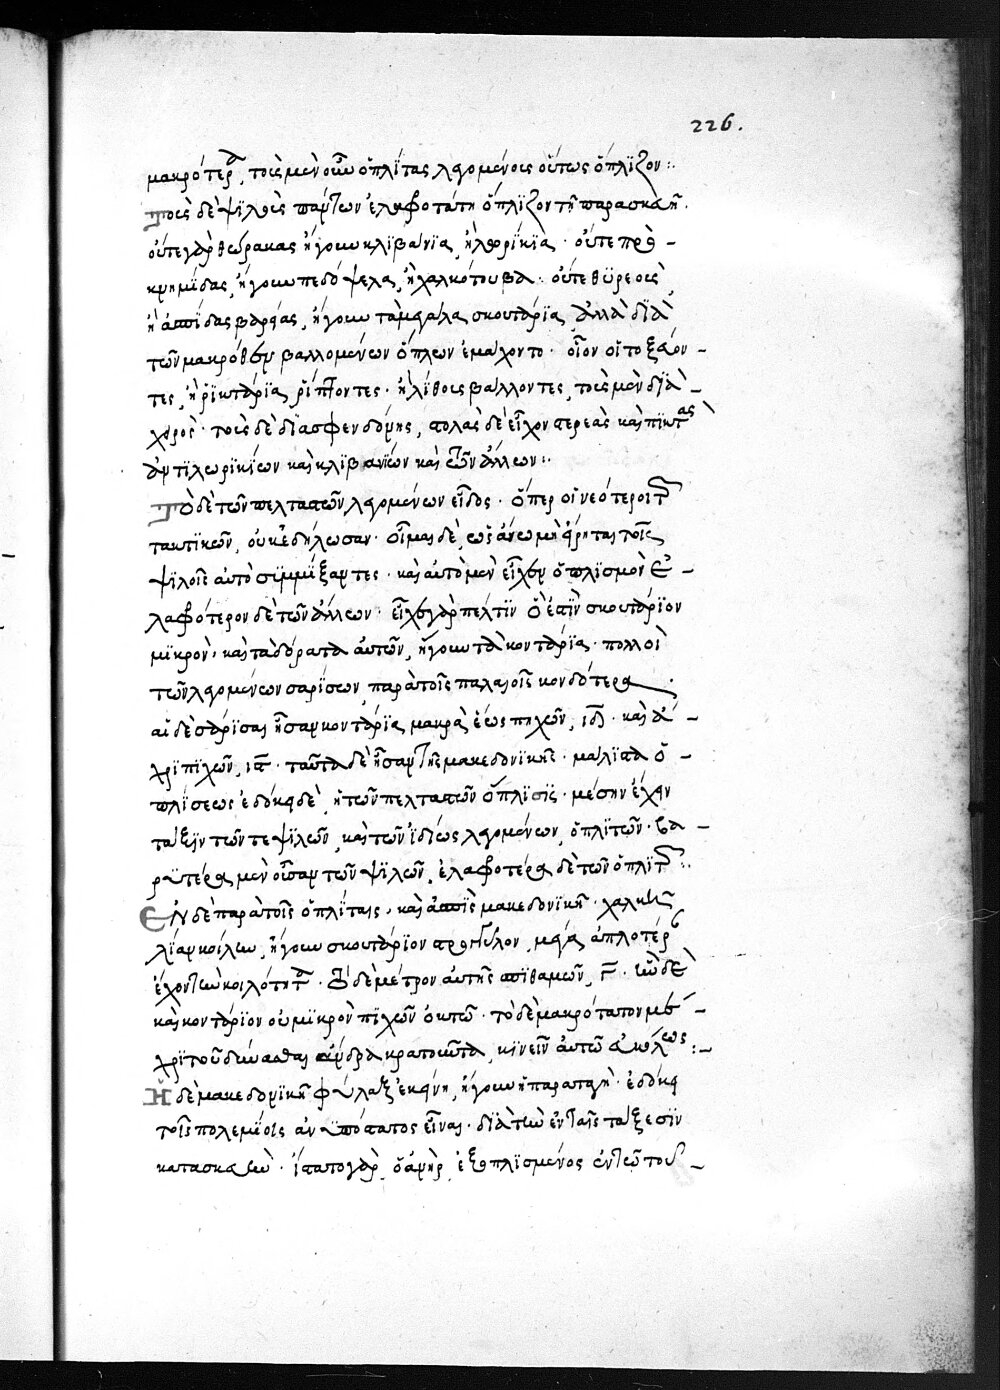 226.
μακρότερα, τοὺς μὲν οὖν ὁπλίτας λεγομένους οὕτως ὅπλιζον:
Τοὺς δὲ ψιλοὺς πάντων ἐλαφροτάτῃ ὅπλιζον τῇ παρασκευῇ.
οὔτε γὰρ θώρακας ἤγουν κλιβάνια, ἢ λωρίκια· οὔτε περι–
κνημίδας, ἤγουν πεδόψελα, ἢ χαλκότουβα· οὔτε θυρεοὺς
ἢ ἀσπίδας βαρείας, ἤγουν τὰ μεγάλα σκουτάρια, ἀλλὰ διὰ
τῶν μακρόθεν βαλλομένων ὅπλων ἐμάχοντο· οἷον οἱ τοξεύον–
τες, ἢ ῥικτάρια ῥίπτοντες· ἢ λίθους βάλλοντες, τοὺς μὲν διὰ
χειρός· τοὺς δὲ διὰ σφενδόνης, στολὰς δὲ εἶχον στερεὰς καὶ πυκτὰς
ἀντὶ λωρικίων καὶ κλιβανίων καὶ τῶν ἄλλων:
Τὸ δὲ τῶν πελταστῶν λεγομένων εἶδος· ὅπερ οἱ νεότεροι τῶν
τακτικῶν, οὐκ ἐδήλωσαν· οἶμαι δὲ, ὡς ἄνω μὴ εἴρηται τοῖς
ψιλοῖς αὐτὸ συμμίξαντες· καὶ αὐτὸ μὲν εἶχεν ὁπλισμὸν ἐ–
λαφρότερον δὲ τῶν ἄλλων· εἶχε γὰρ πέλτην ὅ ἐστιν σκουτάριον
μικρὸν, καὶ τὰ δόρατα αὐτῶν, ἤγουν τὰ κοντάρια· πολλοὶ
τῶν λεγομένων σαρίσων παρὰ τοῖς παλαιοῖς κονδότερα.
αἱ δὲ σάρισαι ἦσαν κοντάρια μακρὰ ἕως πηχῶν, ιδ· καὶ ἄ–
χρι πηχῶν, ις· ταῦτα δὲ ἦσαν τῆς μακεδονικῆς· μάλιστα ὁ–
πλίσεως ἐδόκει δὲ, ἡ τῶν πελταστῶν ὅπλισις· μέσην ἔχειν
τάξιν τῶν τε ψιλῶν, καὶ τῶν ἰδίως λεγομένων ὁπλιτῶν· βα–
ρύτεροι μὲν οὖσαν τῶν ψιλῶν, ἐλαφρότεροι δὲ τῶν ὁπλιτῶν:
Ἐν δὲ παρὰ τοῖς ὁπλίταις, καὶ ἀσπὶς μακεδονικὴ· χαλκῆ
λίαν κοίλω, ἤγουν σκουτάριον στρογγύλον, μετὰ ἁπλοτέρου
ἔχον τὴν κοιλότητα· τὸ δὲ μέτρον αὐτῆς σπιθαμῶν, γ· ἦν δὲ
καὶ κοντάριον οὐ μικρὸν πηχῶν ὀκτῶ· τὸ δὲ μακρότατον μέ–
χρι τοῦ δύνασθαι ἄνδρα κρατοῦντα, κινεῖν αὐτῶ εὐκόλως:
Ἡ δὲ μακεδονικὴ φάλαξ ἐκείνη, ἤγουν ἡ παραταγὴ· ἐδόκει
τοῖς πολεμίοις ἀνυπόστατος εἶναι· διὰ τὴν ἐν ταῖς τάξεσιν
κατασκευὴν· ἵστατο γὰρ, ὁ ἀνὴρ ἐξοπλισμένος ἐν τῶ τοῦ–